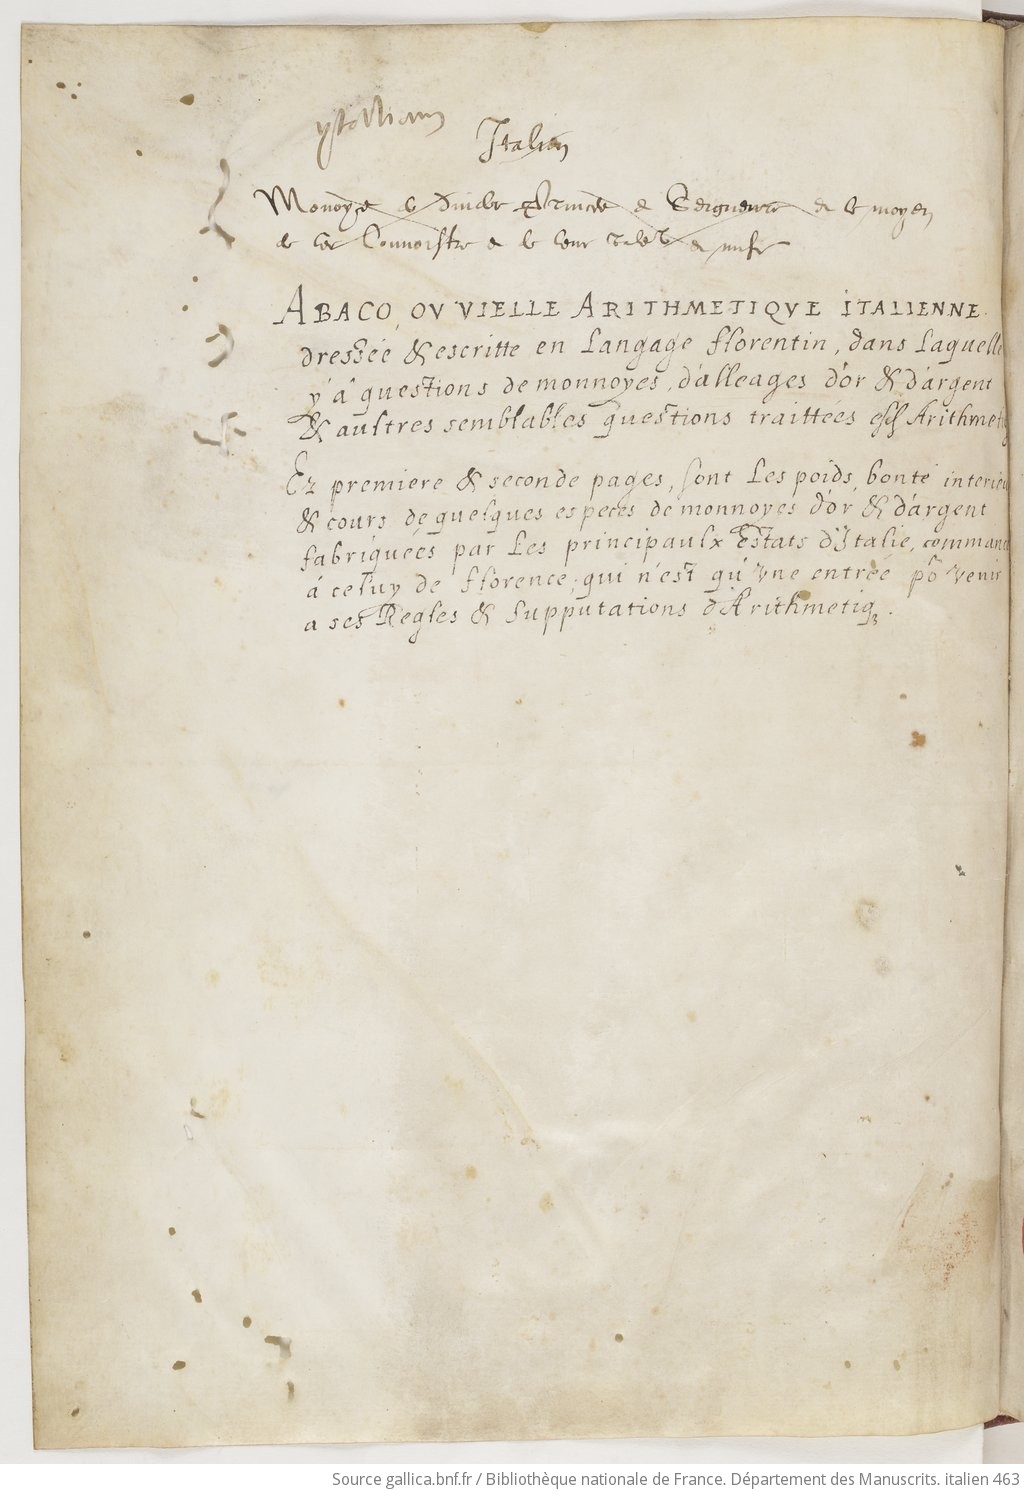 ystalliam
Italien
Monoye de Princes & Seigneurs & le moyen
de les Connoistre & de leur
ABACO, OV VIELLE ARITHMETIQVE ITALIENNE.
dressée & escritte en Langage florentin, dans Laquelle
y â questions de monnoyes, d'alleages d'or & d'argent
& aultres semblables questions traittées
Ez premiere & seconde pages, sont Les poids, bonté
& cours de quelques especes de monnoyes d'or & d'argent
fabriquées par Les principaulx Estats d'Italie,
á celuy de florence, qui n'est qu'vne entrée po venir
a ses Regles & Supputations d'Arithmetiq.
Source gallica.bnf.fr / Bibliothèque nationale de France. Département des Manuscrits. italien 463